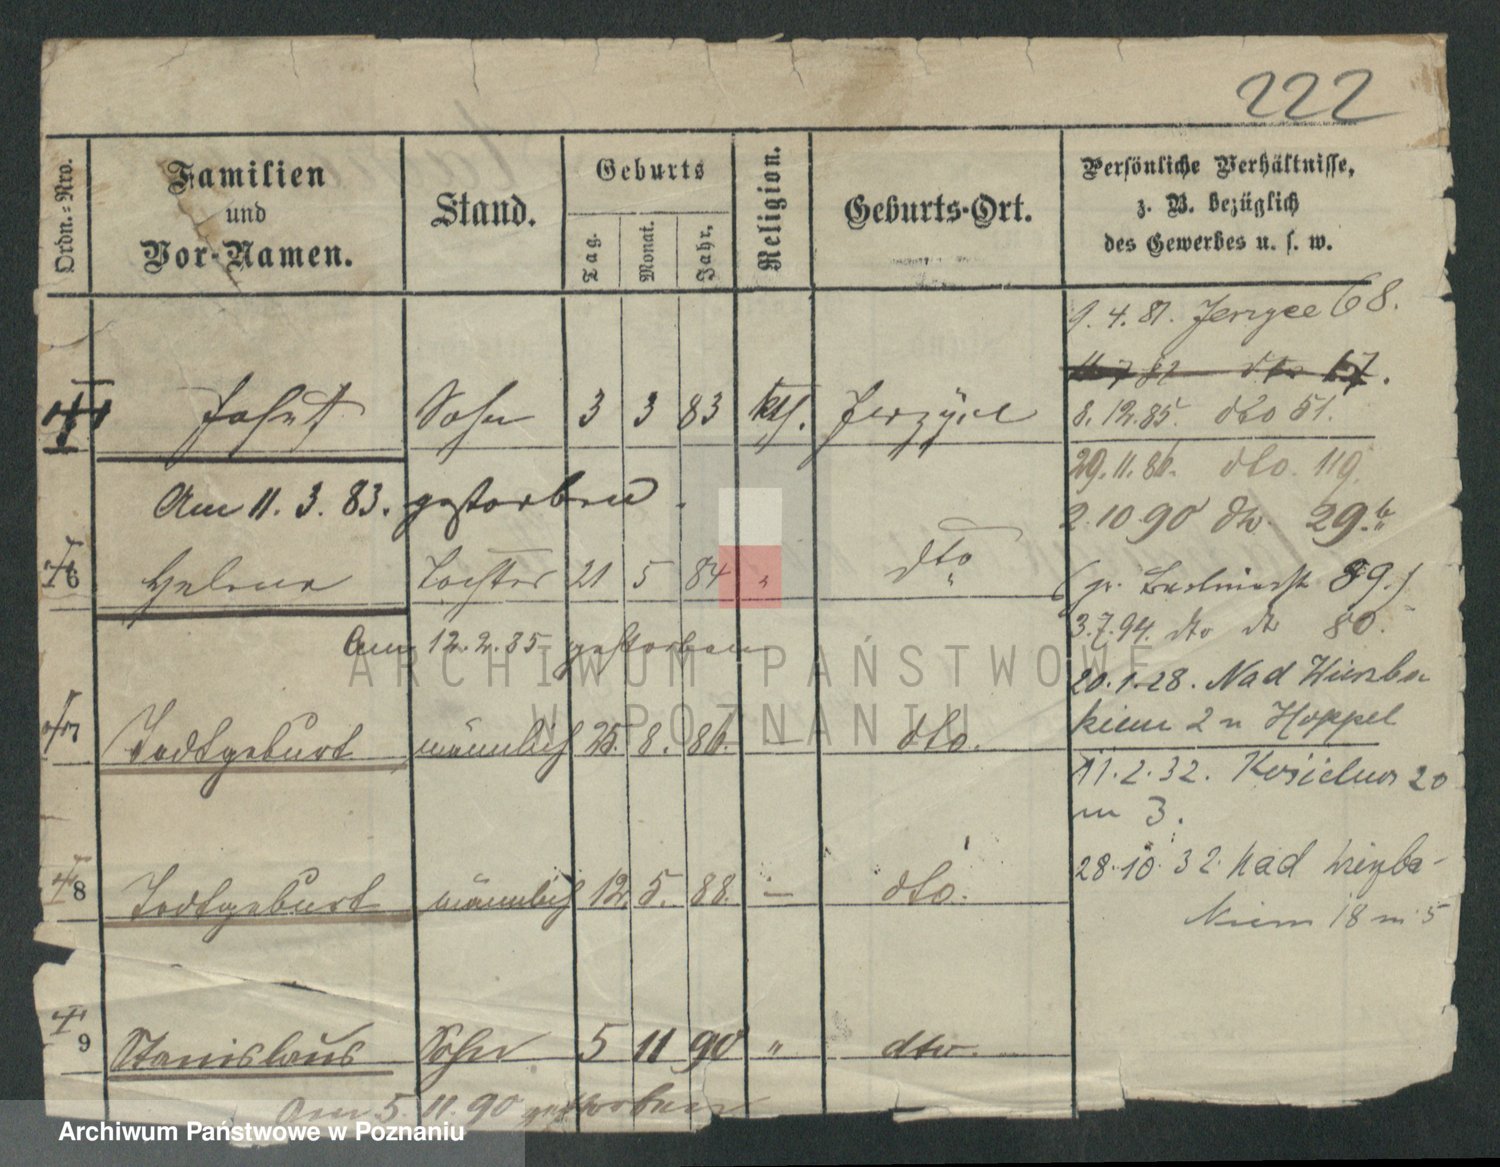 222
Ordn.=Nro.
Familien
und
Vor-Namen.
Stand.
Geburts
Tag.
Monat.
Jahr.
Religion.
Geburts-Ort.
Persönliche Verhältnisse,
z. B. bezüglich
des Gewerbes u. s. w.
9. 4. 81. Jerzyce 68.
8. 12. 85. dto 51.
Sohn 3 3 83 kth. Jerzyce
29. 11. 86. dto. 119
Am 11. 3. 83. gestorben.
2. 10 90 dto. 29.b
6 Helena Tochter 21 5 84 " dto
89.)
3. 7. 94. dto dto 80.
Am 12. 2. 85 gestorben
20. 1. 28. Nad Wierzba
kiem 2 u Hoppel
7 Todtgeburt männlich 25. 8. 86. — dto.
11. 2. 32. 20
m 3.
8 Todtgeburt männlich 12. 5. 88. — dto.
28. 10. 32. Nad Wierzba-
kiem 18 m 5
9 Stanislaus Sohn 5 11 90 " dto.
Am 5. 11. 90 gestorben
ARCHIWUM PAŃSTWOWE
W POZNANIU
Archiwum Państwowe w Poznaniu